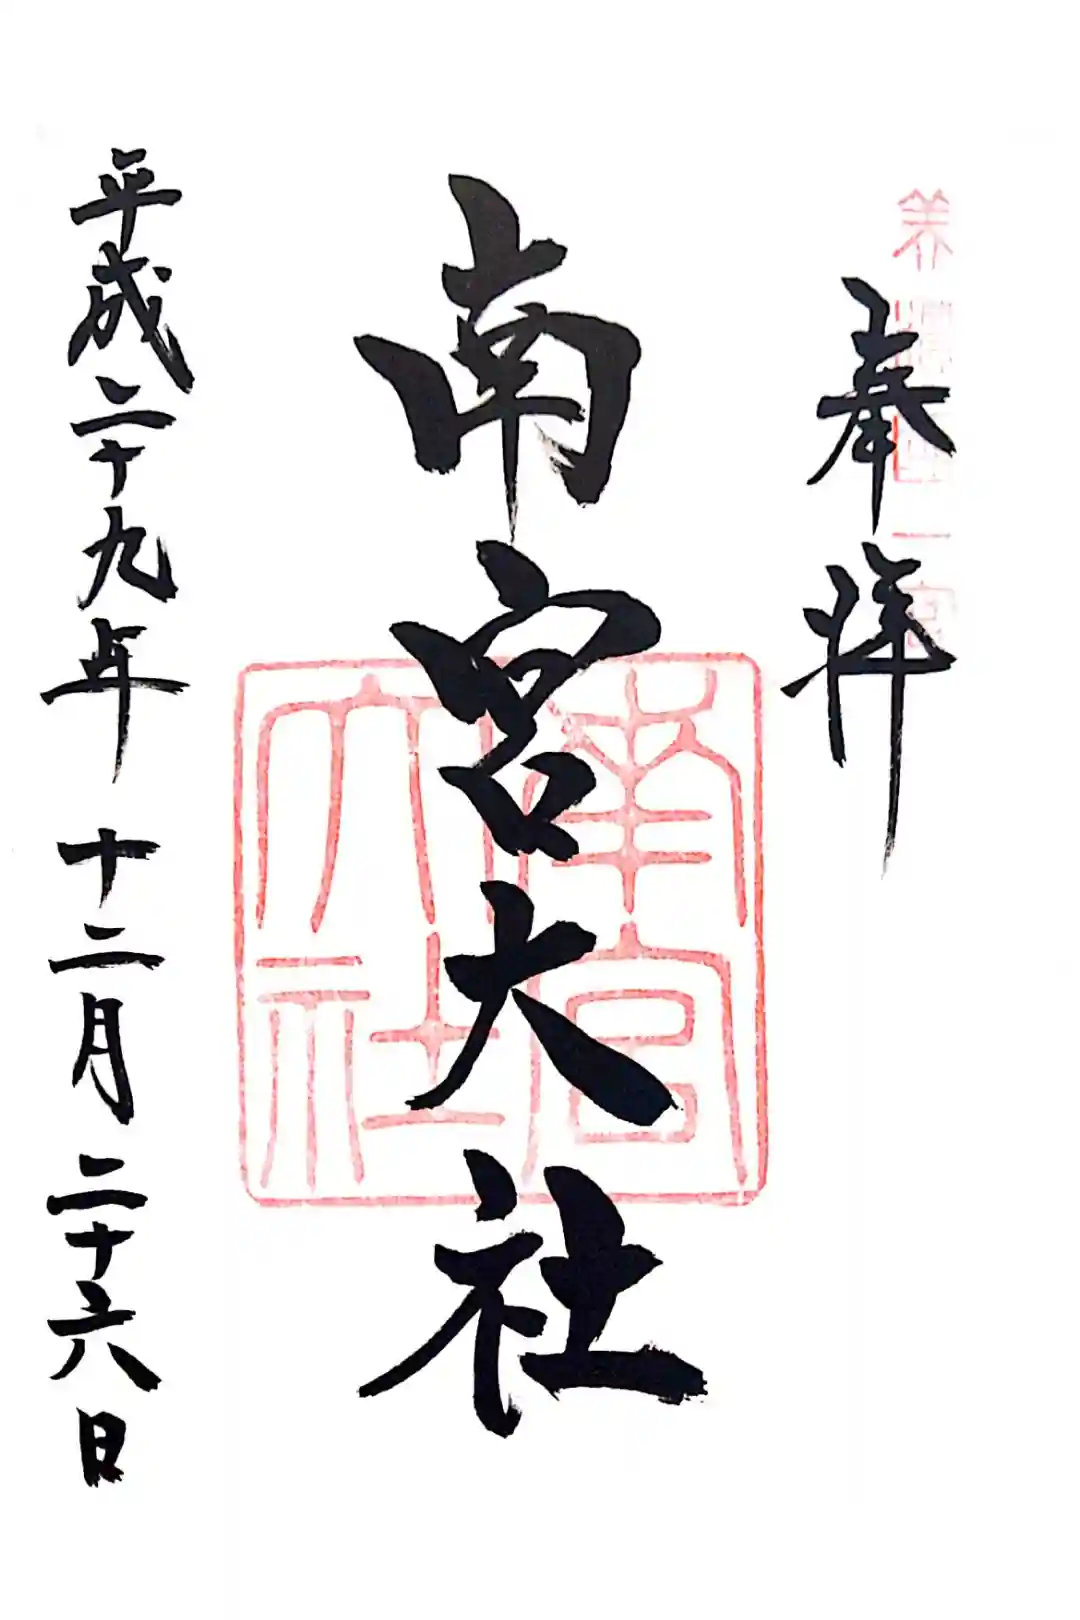 奉拝
美濃國一宮
南宮大社
南宮大社
平成二十九年 十二月 二十六日